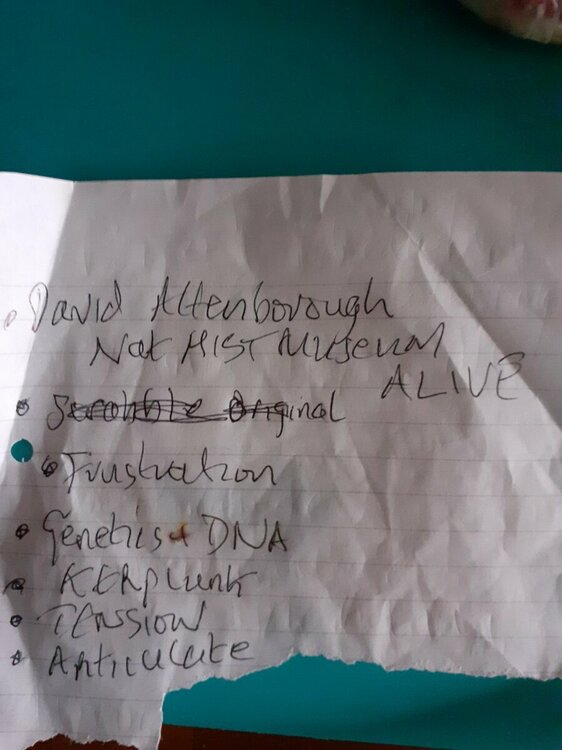 David Attenborough
Nat HIST Museum
ALIVE
Scrabble Original
Frustration
Genetics + DNA
KERPlunk
TENSION
Articulate